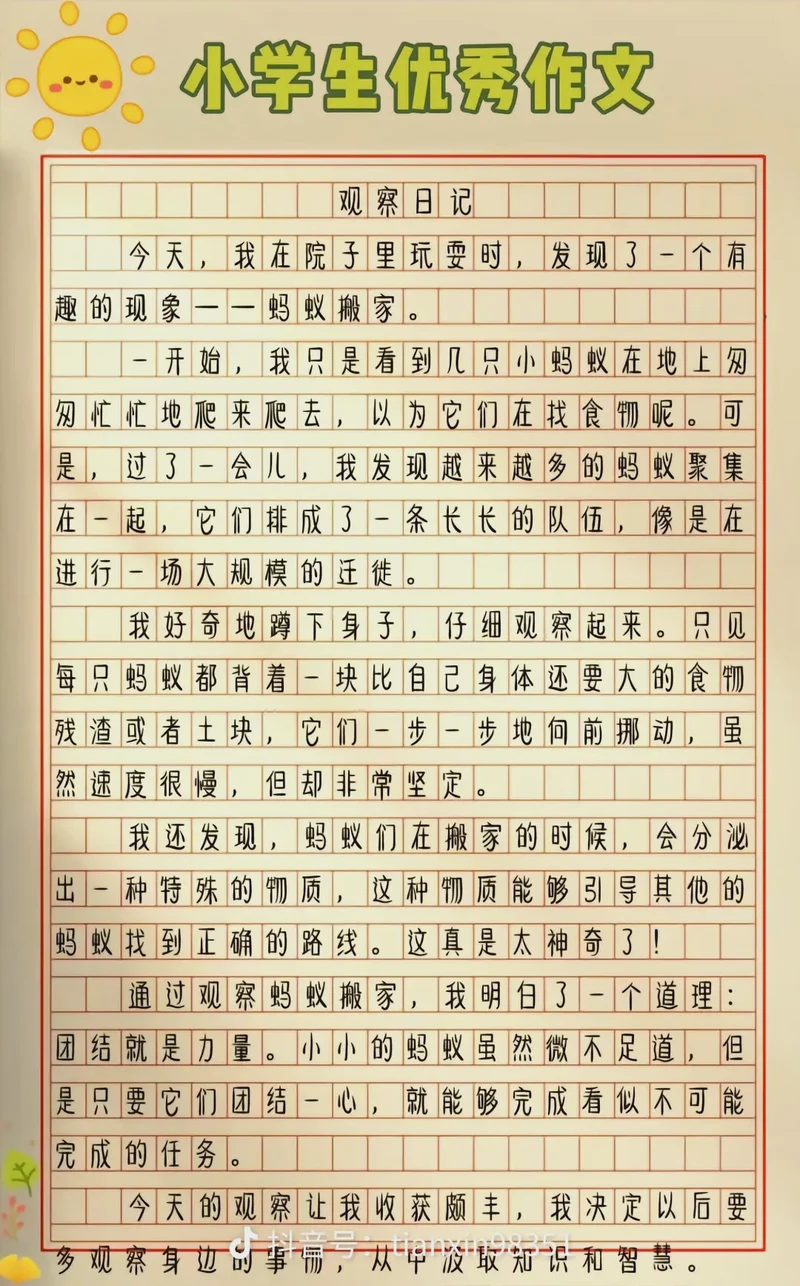 小学生优秀作文
观察日记
今天，我在院子里玩耍时，发现了一个有
趣的现象——蚂蚁搬家。
一开始，我只是看到几只小蚂蚁在地上匆
匆忙忙地爬来爬去，以为它们在找食物呢。可
是，过了一会儿，我发现越来越多的蚂蚁聚集
在一起，它们排成了一条长长的队伍，像是在
进行一场大规模的迁徙。
我好奇地蹲下身子，仔细观察起来。只见
每只蚂蚁都背着一块比自己身体还要大的食物
残渣或者土块，它们一步一步地向前挪动，虽
然速度很慢，但却非常坚定。
我还发现，蚂蚁们在搬家的时候，会分泌
出一种特殊的物质，这种物质能够引导其他的
蚂蚁找到正确的路线。这真是太神奇了！
通过观察蚂蚁搬家，我明白了一个道理：
团结就是力量。小小的蚂蚁虽然微不足道，但
是只要它们团结一心，就能够完成看似不可能
完成的任务。
今天的观察让我收获颇丰，我决定以后要
多观察身边的事物，从中汲取知识和智慧。
抖音号：tianxin98351